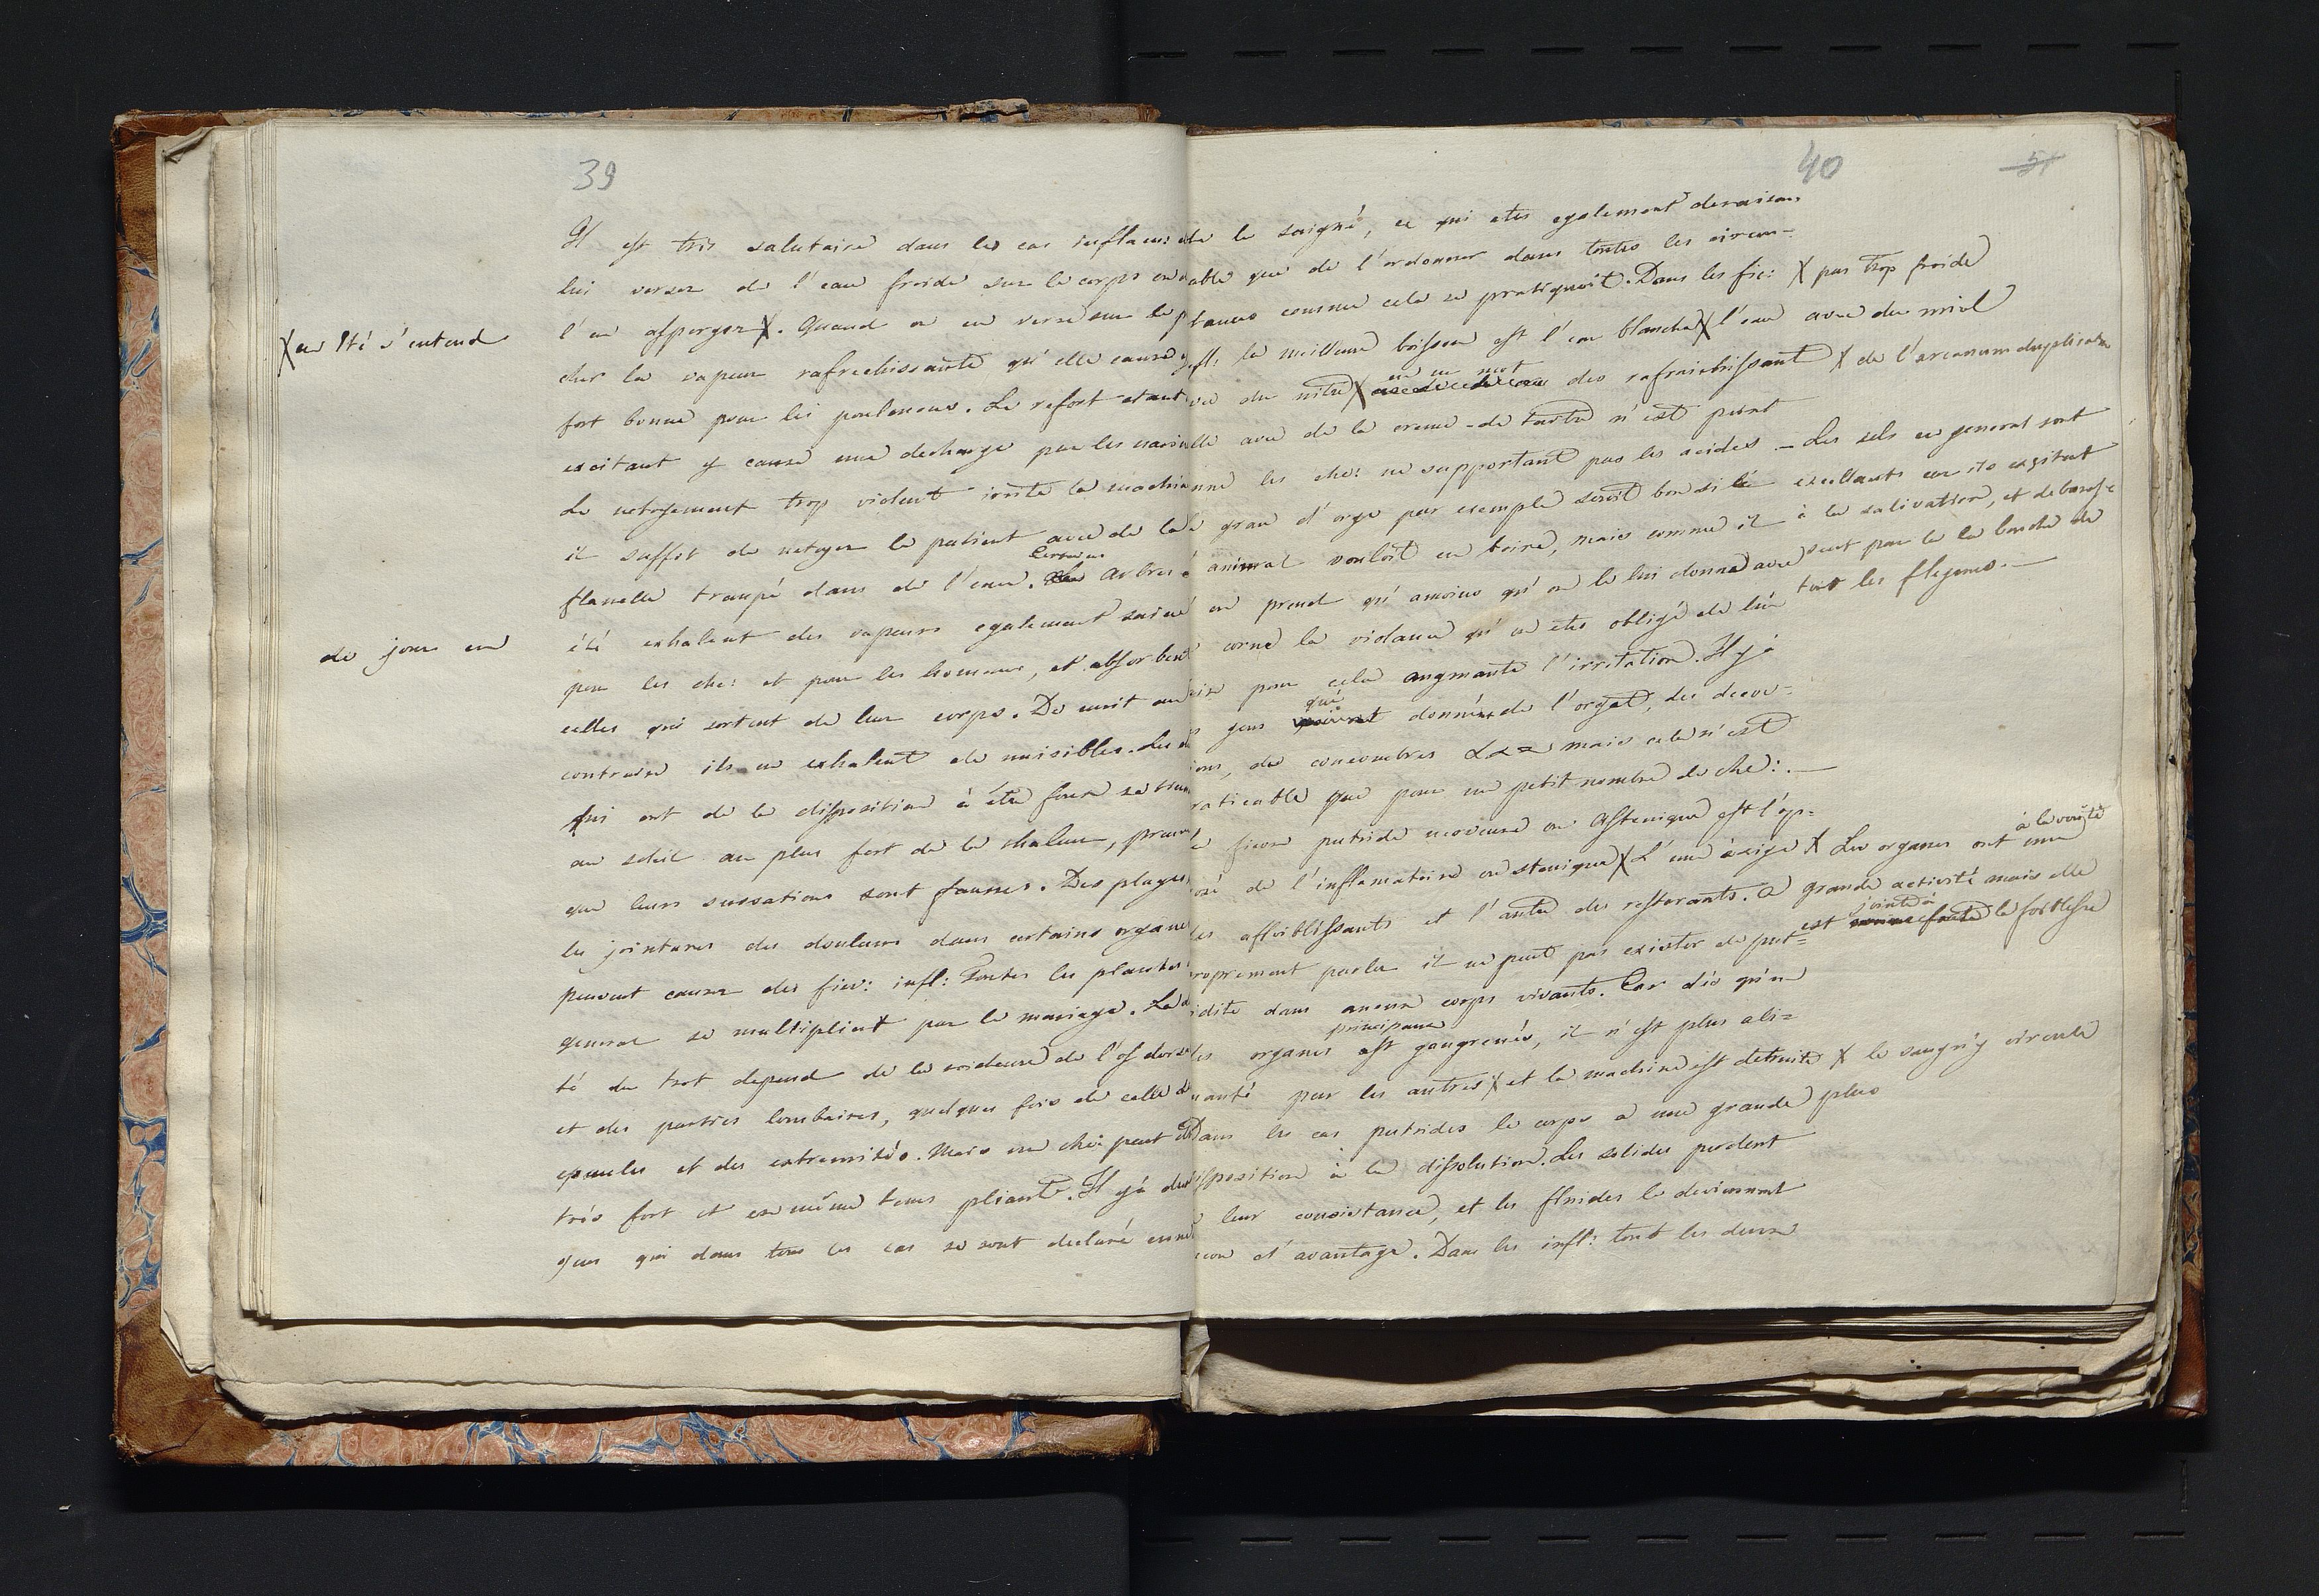 39
Il est très salutaire dans les cas inflam:
lui verser de l'eau froide sur le corps ou
X en Eté s'entend
l'en asperger X. Quand on en verse sur le
cher la vapeur rafrechissante qu'elle cause
fort bonne pour les poulmons. Le refort etant
excitant y cause une decharge par les narin
Le netoyement trop violent irrite la machin
il suffit de netoyer le patient avec de la
flanelle trempé dans de l'eau. Certains arbres
de jour en
été exhalent des vapeurs egalement saines
pour les che: et pour les hommes, et absorbent
celles qui sortent de leur corps. De nuit au
contraire ils en exhalent de nuisibles. Les
qui ont de la disposition à être foux se
au soleil au plus fort de la chaleur, preuve
que leurs sensations sont fausses. Des playes
les jointures des douleurs dans certains organes
peuvent causer des fiev: infl: Toutes les plantes
general se multiplient par le mariage. La
té du trot depend de la roideure de l'os dorsa
et des parties lombaires, quelques fois de celle d
epaules et des extremités. Mais un che: peut
trés fort et en même tems pliant. Il y à des
gens qui dans tous les cas se sont declaré
40
51
de la saigné, ce qui etes egalement deraison
able que de l'ordonner dans toutes les circon-
tances comme cela se pratiquoit. Dans les fie: X pas trop froide
infl: la meilleure boisson est l'eau blanche X l'eau avec du miel
vec du nitre X en un mot des rafraichissant X de l'arcanum duplicatum
lle avec de la creme-de tartre n'est point
nne les che: ne supportant pas les acides - Les sels en general sont
gran d'orge par exemple seroit bon si l' excellants car ils exitent
animal vouloit en boire, mais comme il à la salivation, et debaras-
en prend qu'amoins qu'on le lui donne avec sent par la la bouche de
corne la violance qu'on etes obligé de lui tout les flegmes.-
pour cela augmante l'irritation. Il y à
gens qui donnent de l'orgat, des decoc-
ions, des concombres &c mais cela n'est
raticable que pour un petit nombre de che: -
fievre putride nerveuse ou Astenique est l'op-
osé de l'inflamatoire ou stenique X L'une exige X Les organes ont à la verité une
des affoiblissants et l'autre des restorants. A grande activité mais elle
roprement parler il ne peut pas exister de put- est jointe à la foiblesse
idite dans aucun corps vivants. Car dès qu'un
des organes principaux est gangrenés, il n'est plus ali-
manté par les autres X et la machine est detruite X le sang n'y circule plus
Dans les cas putrides le corps a une grande
disposition à la dissolution. Les solides perdent
leur consistance, et les fluides le deviennent
encore d'avantage. Dans les infl: tout les deux